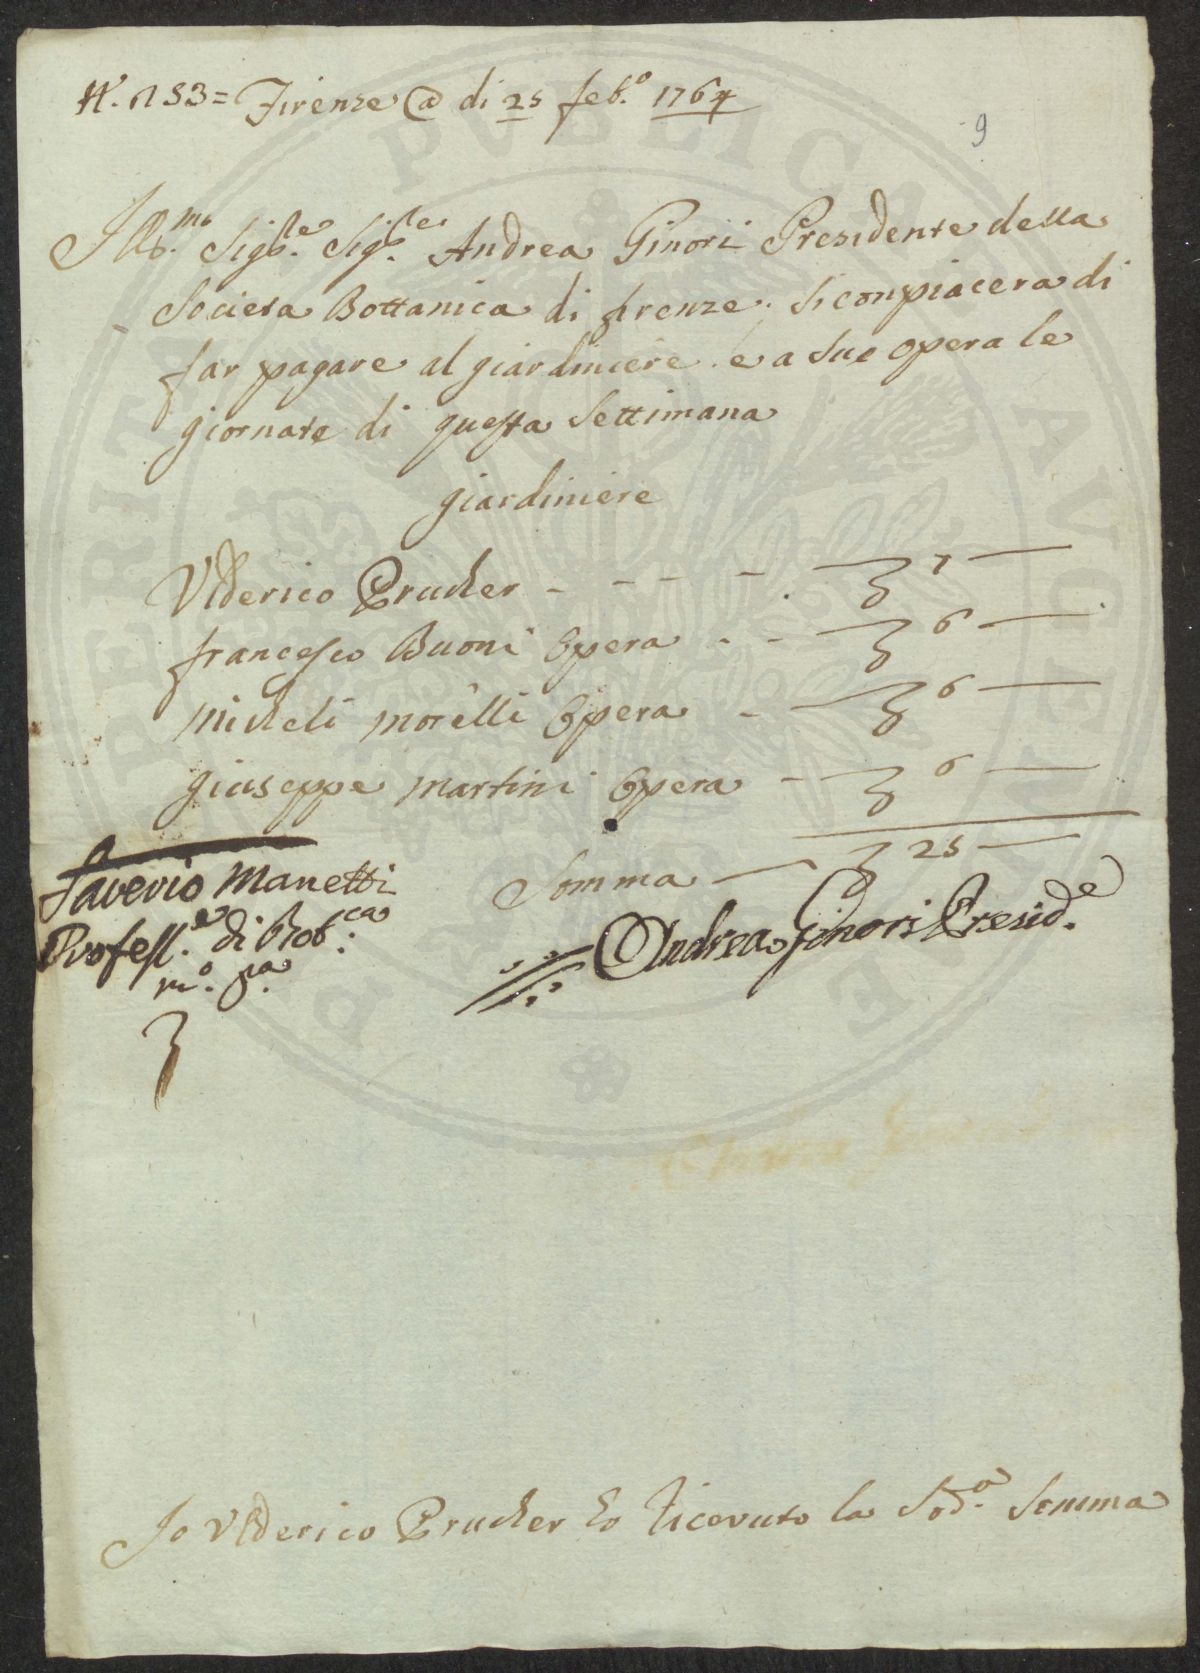 N. 153 = Firenze @ di 25 feb.o 1764
9
Ill.mo Sig.re Sig.re Andrea Ginori Presidente della
Societa Bottanica di firenze. Si conpiacera di
far pagare al giardiniere e a sue opera le
giornate di questa Settimana
giardiniere
Ulderico Prucher - - - - - 7 —
francesco Buoni Opera - - 6 —
micheli morelli Opera - 6 —
giuseppe martini Opera - 6 —
Somma — 25 —
Saverio Manetti
Profess.e di Bot.ca
m.o p.a
Andrea Ginori Presid.e
Io Ulderico Prucher ho ricevuto la Sod.a Somma
PUBLICAE AUGENDAE PERITAE